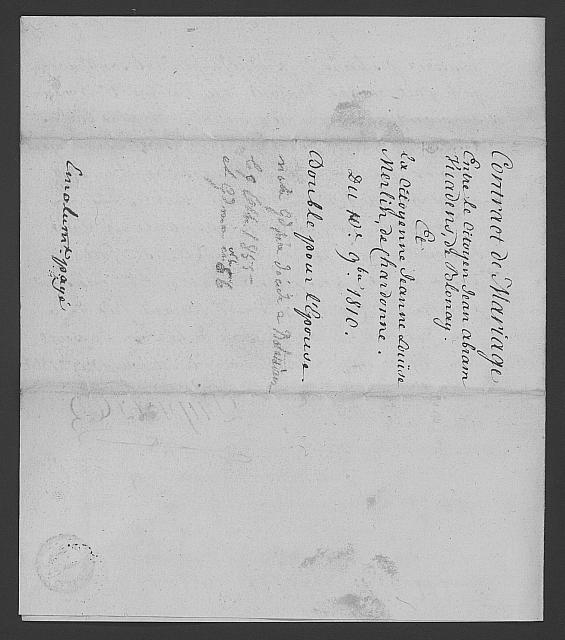 Contract de Mariage
Entre le Citoyen Jean Abram
Vuadens, de Blonay.
Et
La Citoyenne Jeanne Louïse
Merlin, de Chardonne.
Du 9.bre 1810.
Double pour l'Epouse.
décédé à
le 1855
et
Emolument payé